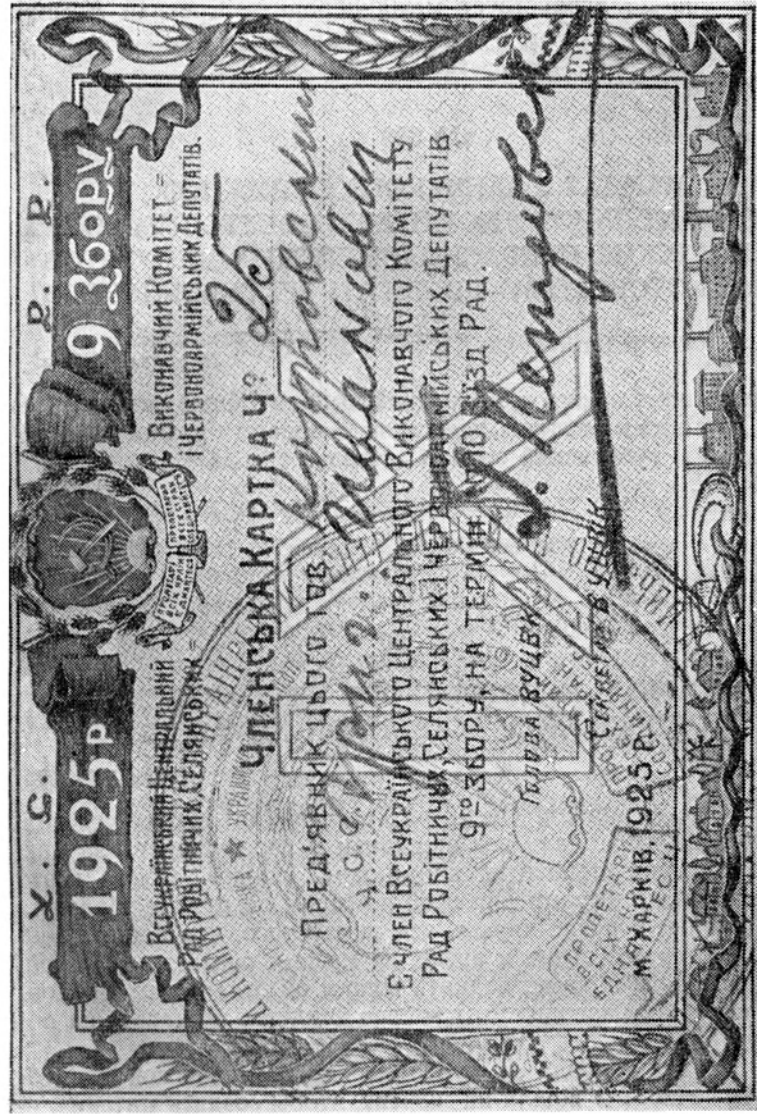 У. С. Р. Р.
1925 р 9 Збору
Всеукраїнський Центральний Виконавчий Комітет =
Рад Робітничих, Селянських = і Червоноармійських Депутатів.
Членська Картка Ч? 25
Пред'явник цього тов. Котовский
Григ. Иванович
Є член Всеукраїнського Центрального Виконавчого Комітету
Рад Робітничих, Селянських і Червоноармійських Депутатів
9го збору, на термін по з'їзд Рад.
Голова ВУЦВК Г. Петровск
Секретар ВУЦВК
М. Харків, 1925 р.
ПРОЛЕТАРІ
ВСІХ
ЄДН